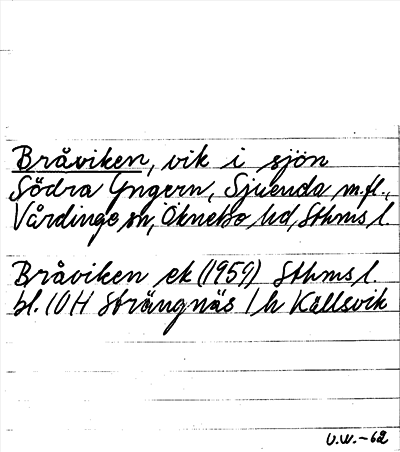 Bråviken, vik i sjön
Södra Yngern, Sjuenda m.fl.,
Vårdinge sn, Öknebo hd, Sthms l.
Bråviken ek (1959) Sthms l.
bl. 10H Strängnäs 1h Källsvik
U.W.-62